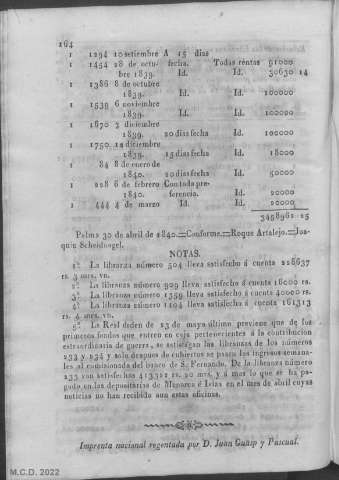 164
1 1294 10 setiembre A 15 dias
1 1454 28 de octu- fecha. Todas rentas 91000
bre 1839. Id. Id. 30630 14
1 1386 8 de octubre
1839. Id. Id. 100000
1 1539 6 noviembre
1839. Id. Id. 100000
1 1670 3 diciembre
1839. 20 dias fecha Id. 100000
1 1750 12 diciembre
1839. 15 dias fecha Id. 18000
1 84 8 de enero de
1840. 20 dias fecha Id. 50000
1 228 6 de febrero Con toda pre-
1840. ferencia. Id. 20000
1 444 4 de marzo Id. Id. 20000
3458962 25
Palma 30 de abril de 1840.=Conforme.=Roque Artalejo.=Joa-
quin Scheidnagel.
NOTAS.
1.ª La libranza número 504 lleva satisfecho á cuenta 226637
rs. 3 mrs. vn.
2.ª La libranza número 909 lleva satisfecho á cuenta 16000 rs.
3.ª La libranza número 1359 lleva satisfecho á cuenta 40000 rs.
4.ª La libranza número 1104 lleva satisfecho á cuenta 161313
rs. 4 mrs. vn.
5.ª La Real órden de 13 de mayo último previene que de los
primeros fondos que entren en caja pertenecientes á la contribucion
estraordinaria de guerra, se satisfagan las libranzas de los números
233 y 234 y solo despues de cubiertos se pasen los ingresos semana-
les al comisionado del banco de S. Fernando. De la libranza número
233 van satisfechos 413921 rs. 20 mrs. y á mas lo que se ha pa-
gado en las depositarías de Menorca é Ibiza en el mes de abril cuyas
noticias no han recibido aun estas oficinas.
Imprenta nacional regentada por D. Juan Guasp y Pascual.
M.C.D. 2022